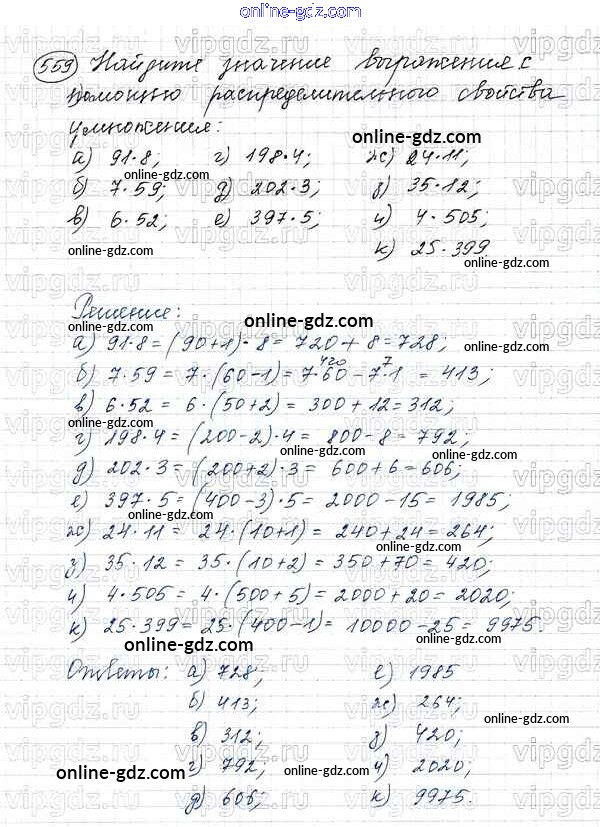 online-gdz.com
559 Найдите значение выражения с
помощью распределительного свойства
умножения:
online-gdz.com
а) 91·8; г) 198·4; ж) 24·11;
б) 7·59; д) 202·3; з) 35·12;
в) 6·52; е) 397·5; и) 4·505;
к) 25·399.
online-gdz.com
Решение:
online-gdz.com
а) 91·8 = (90+1)·8 = 720 + 8 = 728;
420 7
б) 7·59 = 7·(60-1) = 7·60 - 7·1 = 413;
в) 6·52 = 6·(50+2) = 300 + 12 = 312;
г) 198·4 = (200-2)·4 = 800 - 8 = 792;
д) 202·3 = (200+2)·3 = 600 + 6 = 606;
е) 397·5 = (400-3)·5 = 2000 - 15 = 1985;
ж) 24·11 = 24·(10+1) = 240 + 24 = 264;
з) 35·12 = 35·(10+2) = 350 + 70 = 420;
и) 4·505 = 4·(500+5) = 2000 + 20 = 2020;
к) 25·399 = 25·(400-1) = 10000 - 25 = 9975.
online-gdz.com
Ответы: а) 728; е) 1985
б) 413; ж) 264;
в) 312; з) 420;
г) 792; и) 2020;
д) 606; к) 9975.
online-gdz.com